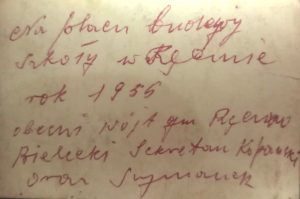 Na placu budowy
szkoły w Ręcznie
rok 1956
obecni wójt gm Ręczno
Bielecki Sekretarz
oraz Szymanek